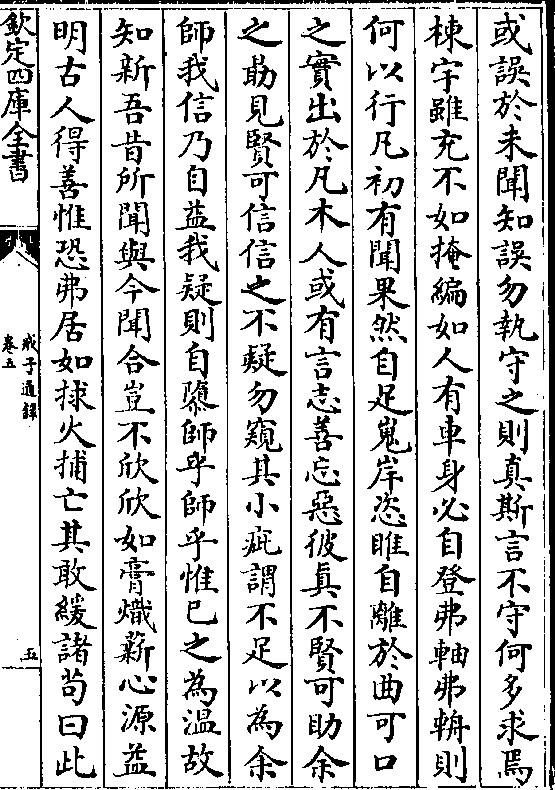 或誤於未聞知誤勿執守之則真斯言不守何多求焉
棟宇雖充不如掩編如人有車身必自登弗軸弗輈則
何以行凡初有聞果然自足嵬岸恣睢自離於曲可口
之實出於凡木人或有言志善忘惡彼眞不賢可助余
之勛見賢可信信之不疑勿窺其小疵謂不足以為余
師我信乃自益我疑則自隳師乎師乎惟已之為温故
知新吾昔所聞與今聞合豈不欣欣如膏熾薪心源益
明古人得善惟恐弗居如捄火捕亡其敢緩諸茍曰此
欽定四庫全書
戒子通録
卷五
五